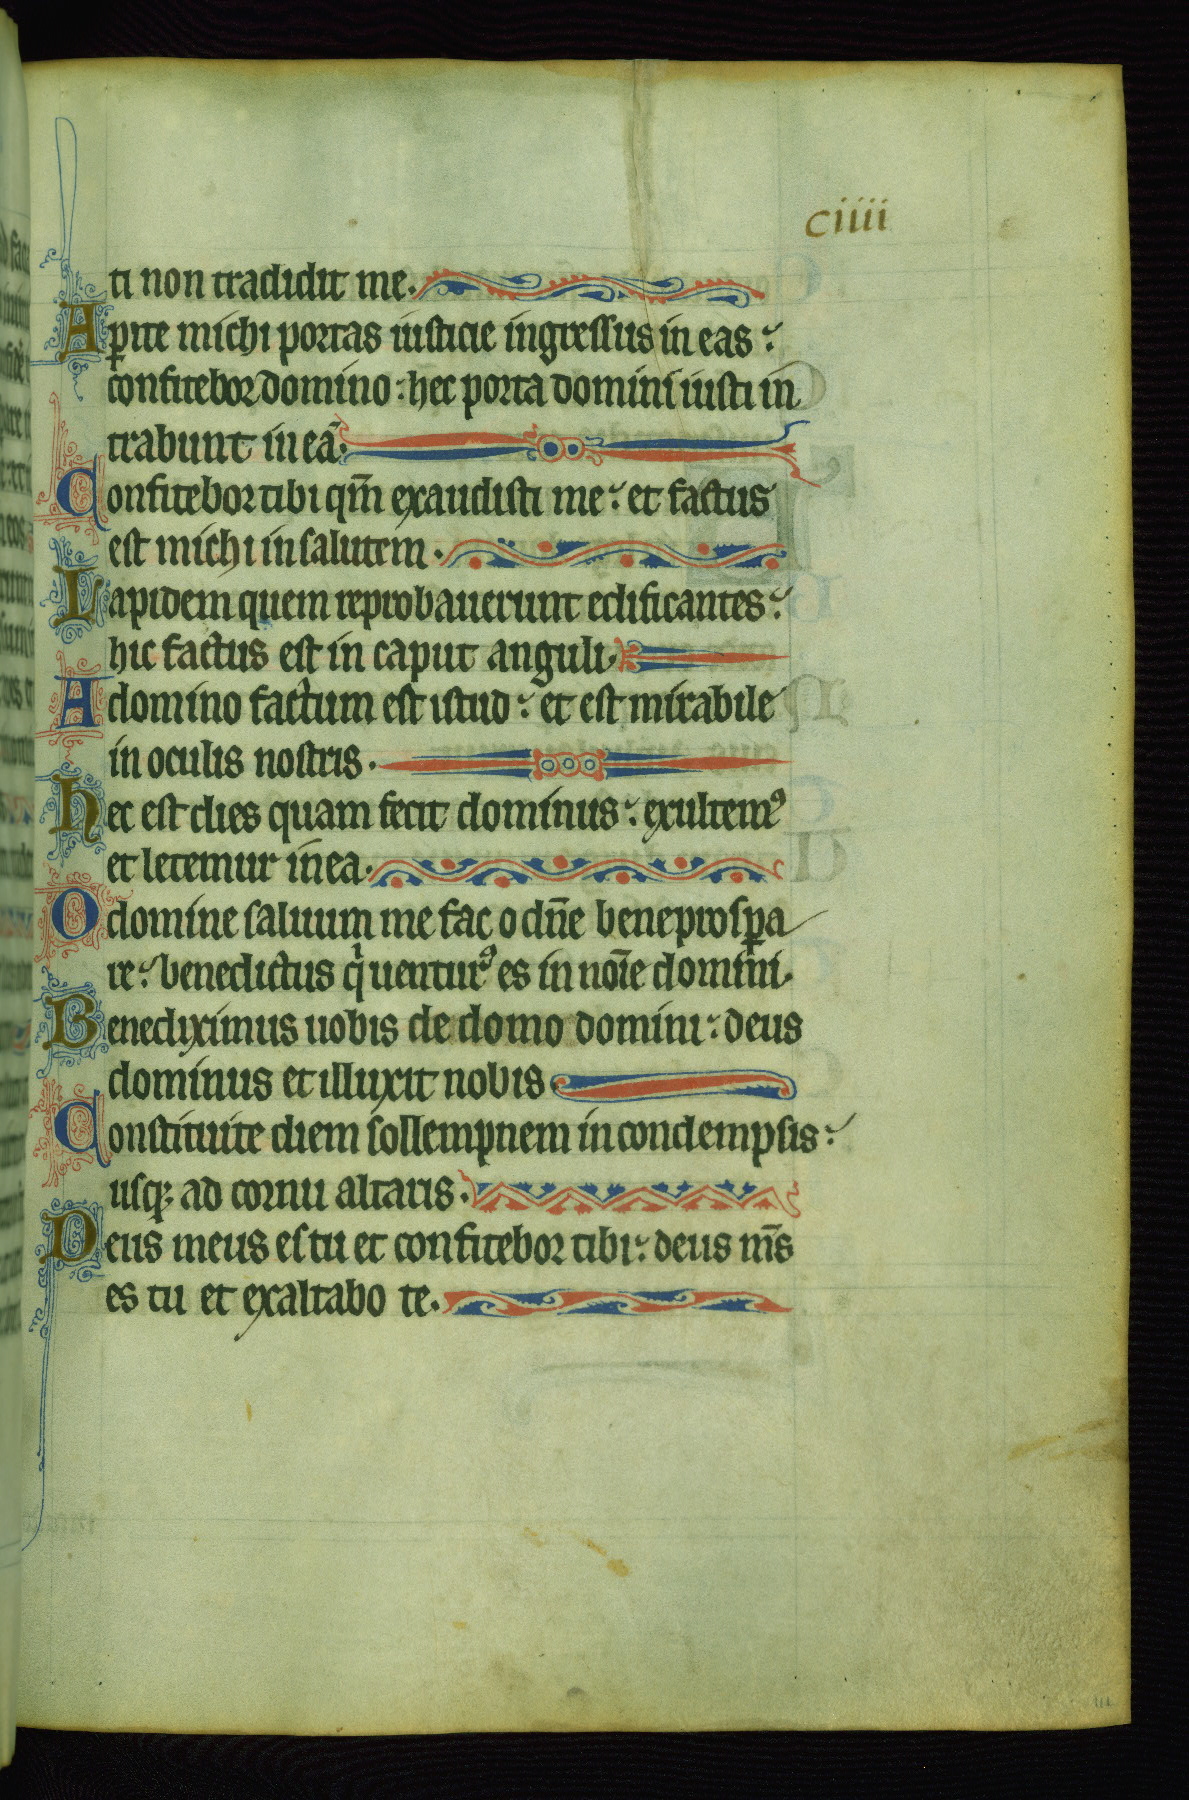 ciiii
ti non tradidit me.
Aꝑite michi portas iusticie ingressus in eas :
confitebor domino : hec porta domini iusti in
trabunt in eā.
Confitebor tibi qm̄ exaudisti me : et factus
est michi in salutem .
Lapidem quem reprobauerunt edificantes :
hic factus est in caput anguli.
A domino factum est istud : et est mirabile
in oculis nostris .
Hec est dies quam fecit dominus : exultemꝰ
et letemur in ea.
O domine saluum me fac o dn̄e bene prosꝑa
re : benedictus qͥ uenturꝰ es in noīe domini.
Benediximus uobis de domo domini : deus
dominus et illuxit nobis.
Constituite diem sollempnem in condempsis :
usqꝫ ad cornu altaris .
Deus meus es tu et confitebor tibi : deus m̄s
es tu et exaltabo te.
111